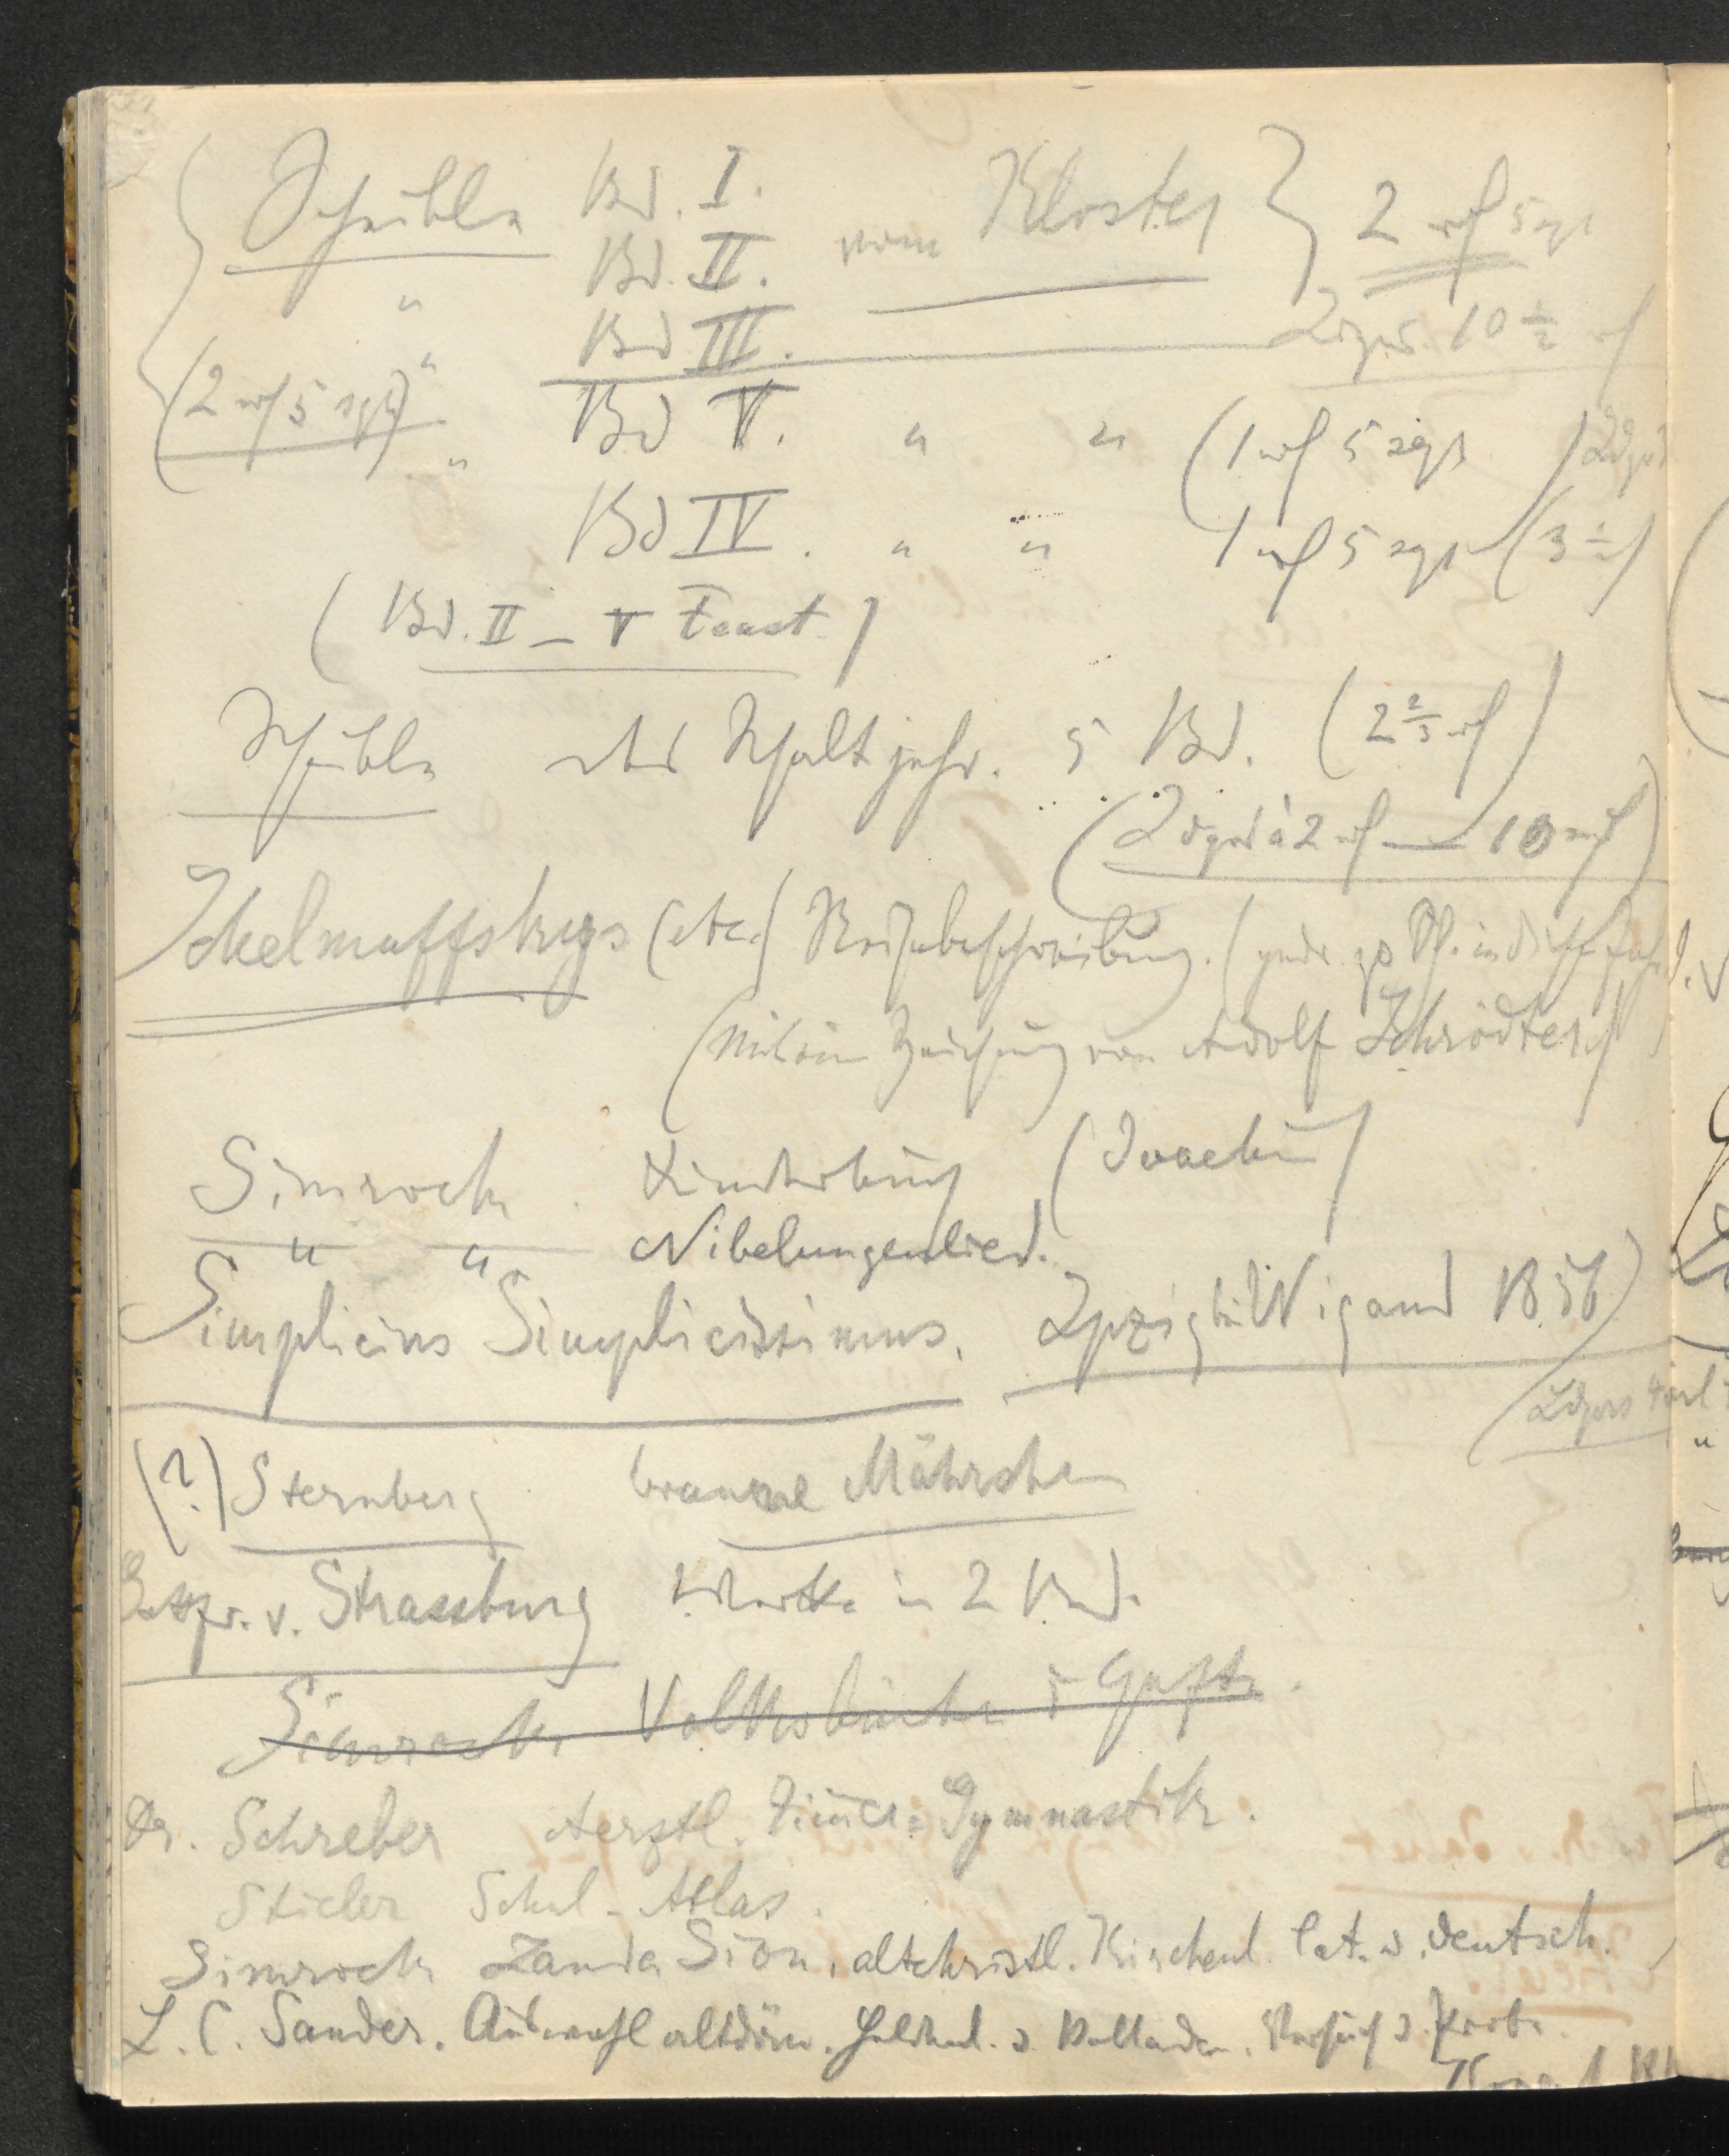 Scheible Bd. I.
" Bd. II. vom Kloster } 2 rf 5 sgr
" Bd III. Ldpr. 10 ½ rf
(2 rf 5 sgr)
" Bd V. " " (1 rf 5 sgr)
Bd IV. " " 1 rf 5 sgr (3 ½)
(Bd. II – V Faust)
Scheible das Schaltjahr. 5 Bd. (2 2/3 rf)
(à 2 rf — 10 rf)
Schelmuffskys (etc.) Reisebeschreibung.
(Mit ein Zeichnung von Adolf Schrödter)
Simrock. Kinderbuch (Joachim)
" " Nibelungenlied.
Simplicius Simplicissimus. Lpzig bei Wigand 1856)
(?) Sternberg braune Mährchen
Gottfr. v. Strassburg Werke in 2 Bnd.
Simrock. Volksbücher
Dr. Schreber Aerztl. Zim̄er-Gymnastik.
Stieler Schul-Atlas.
Simrock Lauda Sion, altchristl. Kirchenl. lat. u. deutsch.
L. C. Sander. Auswahl altdän. Heldenl. u. Balladen.